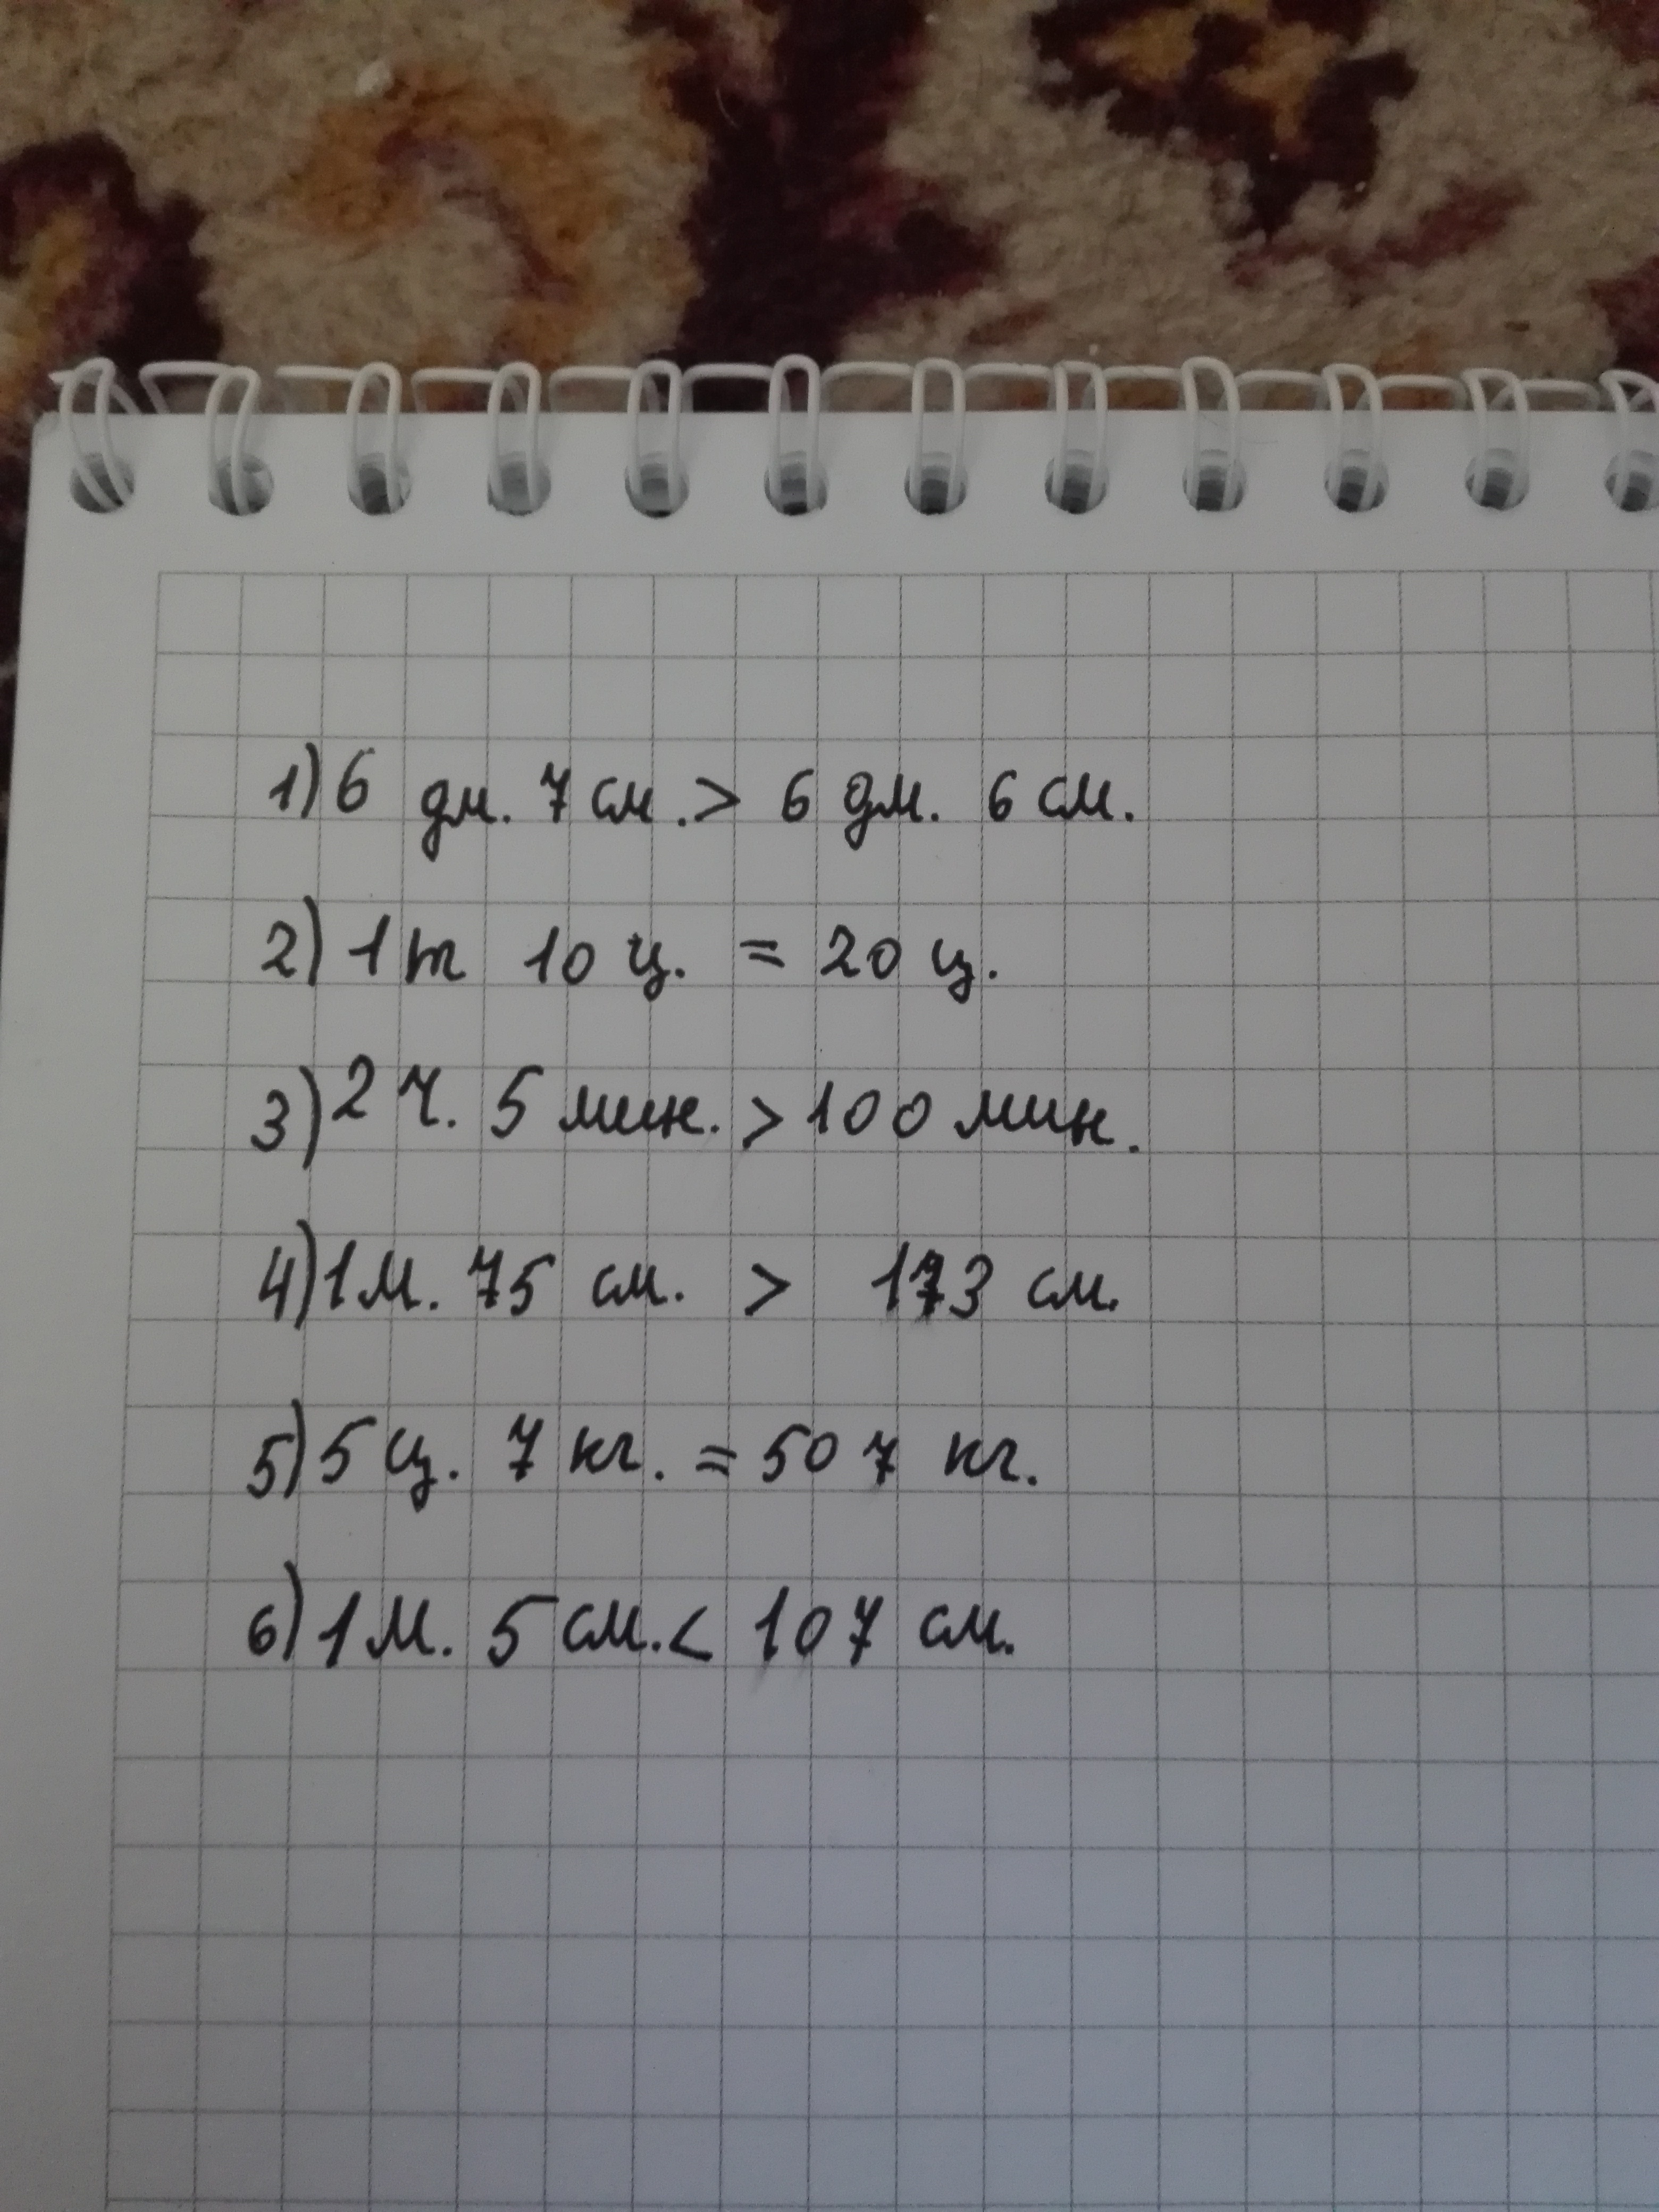 1) 6 дм. 7 см. > 6 дм. 6 см.
2) 1 т 10 ц. = 20 ц.
3) 2 ч. 5 мин. > 100 мин.
4) 1 м. 75 см. > 173 см.
5) 5 ц. 7 кг. = 507 кг.
6) 1 м. 5 см. < 107 см.